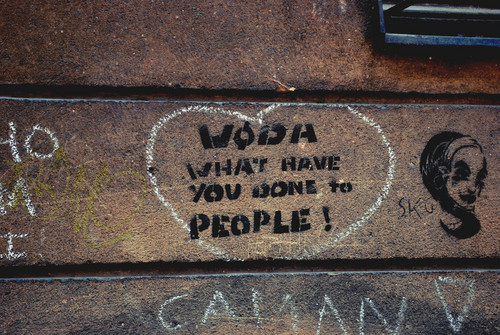 WODA
WHAT HAVE
YOU DONE to
PEOPLE!
HO
M
I
SKU
CAIMAN